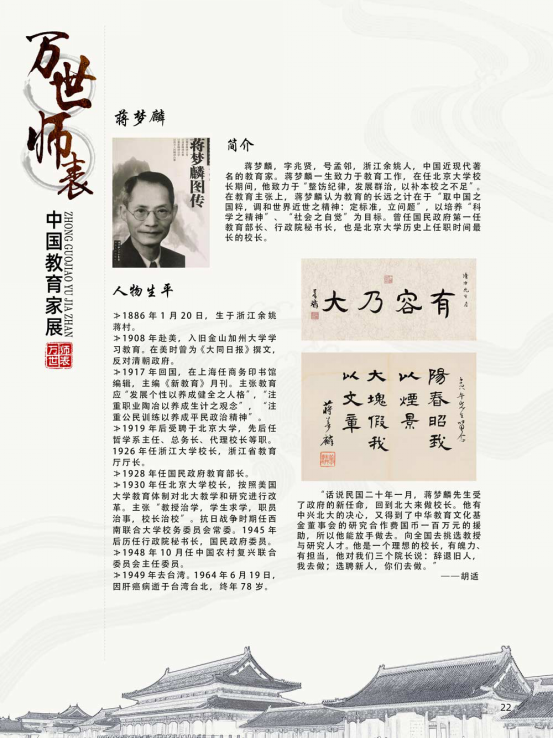 万世师表
中国教育家展
ZHONG GUOJIAO YU JIA ZHAN
万世师表
蒋梦麟
蒋梦麟图传
简介
蒋梦麟，字兆贤，号孟邻，浙江余姚人，中国近现代著
名的教育家。蒋梦麟一生致力于教育工作，在任北京大学校
长期间，他致力于“整饬纪律，发展群治，以补本校之不足”。
在教育主张上，蒋梦麟认为教育的长远之计在于“取中国之
国粹，调和世界近世之精神：定标准，立问题”，以培养“科
学之精神”、“社会之自觉”为目标。曾任国民政府第一任
教育部长、行政院秘书长，也是北京大学历史上任职时间最
长的校长。
人物生平
≫1886年1月20日，生于浙江余姚
蒋村。
≫1908年赴美，入旧金山加州大学学
习教育。在美时曾为《大同日报》撰文，
反对清朝政府。
≫1917年回国，在上海任商务印书馆
编辑，主编《新教育》月刊。主张教育
应“发展个性以养成健全之人格”，“注
重职业陶冶以养成生计之观念”，“注
重公民训练以养成平民政治精神”。
≫1919年后受聘于北京大学，先后任
哲学系主任、总务长、代理校长等职。
1926年任浙江大学校长，浙江省教育
厅厅长。
≫1928年任国民政府教育部长。
≫1930年任北京大学校长，按照美国
大学教育体制对北大教学和研究进行改
革。主张“教授治学，学生求学，职员
治事，校长治校”。抗日战争时期任西
南联合大学校务委员会常委。1945年
后历任行政院秘书长，国民政府委员。
≫1948年10月任中国农村复兴联合
委员会主任委员。
≫1949年去台湾。1964年6月19日，
因肝癌病逝于台湾台北，终年78岁。
有容乃大
陽春昭我
以煙景
大塊假我
以文章
蒋梦麟
“话说民国二十年一月，蒋梦麟先生受
了政府的新任命，回到北大来做校长。他有
中兴北大的决心，又得到了中华教育文化基
金董事会的研究合作费国币一百万元的援
助，所以他能放手做去，向全国去挑选教授
与研究人才。他是一个理想的校长，有魄力、
有担当，他对我们三个院长说：辞退旧人，
我去做；选聘新人，你们去做。”
——胡适
22